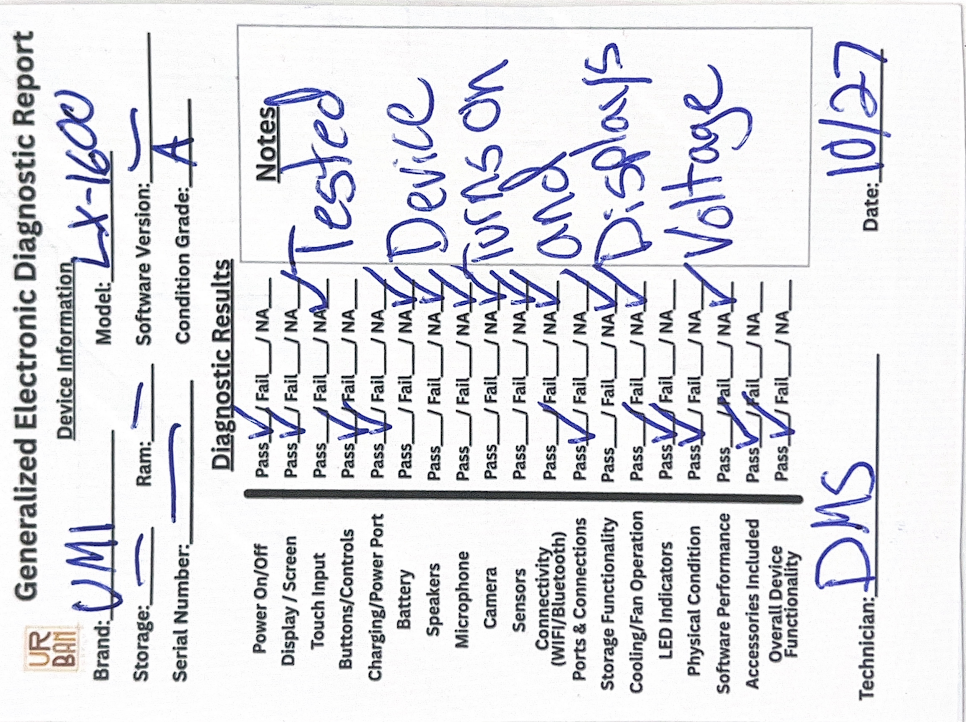 UR
BAN
Generalized Electronic Diagnostic Report
Device Information
Brand: VMI Model: LX-1600
Storage: — Ram: — Software Version: —
Serial Number: — Condition Grade: A
Diagnostic Results
Power On/Off Pass ✓ / Fail___/ NA___
Display / Screen Pass ✓ / Fail___/ NA___
Touch Input Pass___/ Fail___/ NA ✓
Buttons/Controls Pass ✓ / Fail___/ NA___
Charging/Power Port Pass ✓ / Fail___/ NA___
Battery Pass___/ Fail___/ NA ✓
Speakers Pass___/ Fail___/ NA ✓
Microphone Pass___/ Fail___/ NA ✓
Camera Pass___/ Fail___/ NA ✓
Sensors Pass___/ Fail___/ NA ✓
Connectivity
(WIFI/Bluetooth) Pass___/ Fail___/ NA ✓
Ports & Connections Pass ✓ / Fail___/ NA___
Storage Functionality Pass___/ Fail___/ NA ✓
Cooling/Fan Operation Pass ✓ / Fail___/ NA___
LED Indicators Pass ✓ / Fail___/ NA___
Physical Condition Pass ✓ / Fail___/ NA___
Software Performance Pass___/ Fail___/ NA ✓
Accessories Included Pass ✓ / Fail___/ NA___
Overall Device
Functionality Pass ✓ / Fail___/ NA___
Notes
Tested
Device
Turns on
and
Displays
Voltage
Technician: DMS Date: 10/27